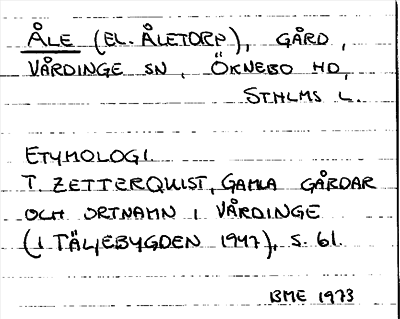 ÅLE (EL. ÅLETORP), GÅRD,
VÅRDINGE SN, ÖKNEBO HD,
STHLMS L.
ETYMOLOGI.
T. ZETTERQUIST, GAMLA GÅRDAR
OCH ORTNAMN I VÅRDINGE
(I TÄLJEBYGDEN 1947), S. 61.
BME 1973